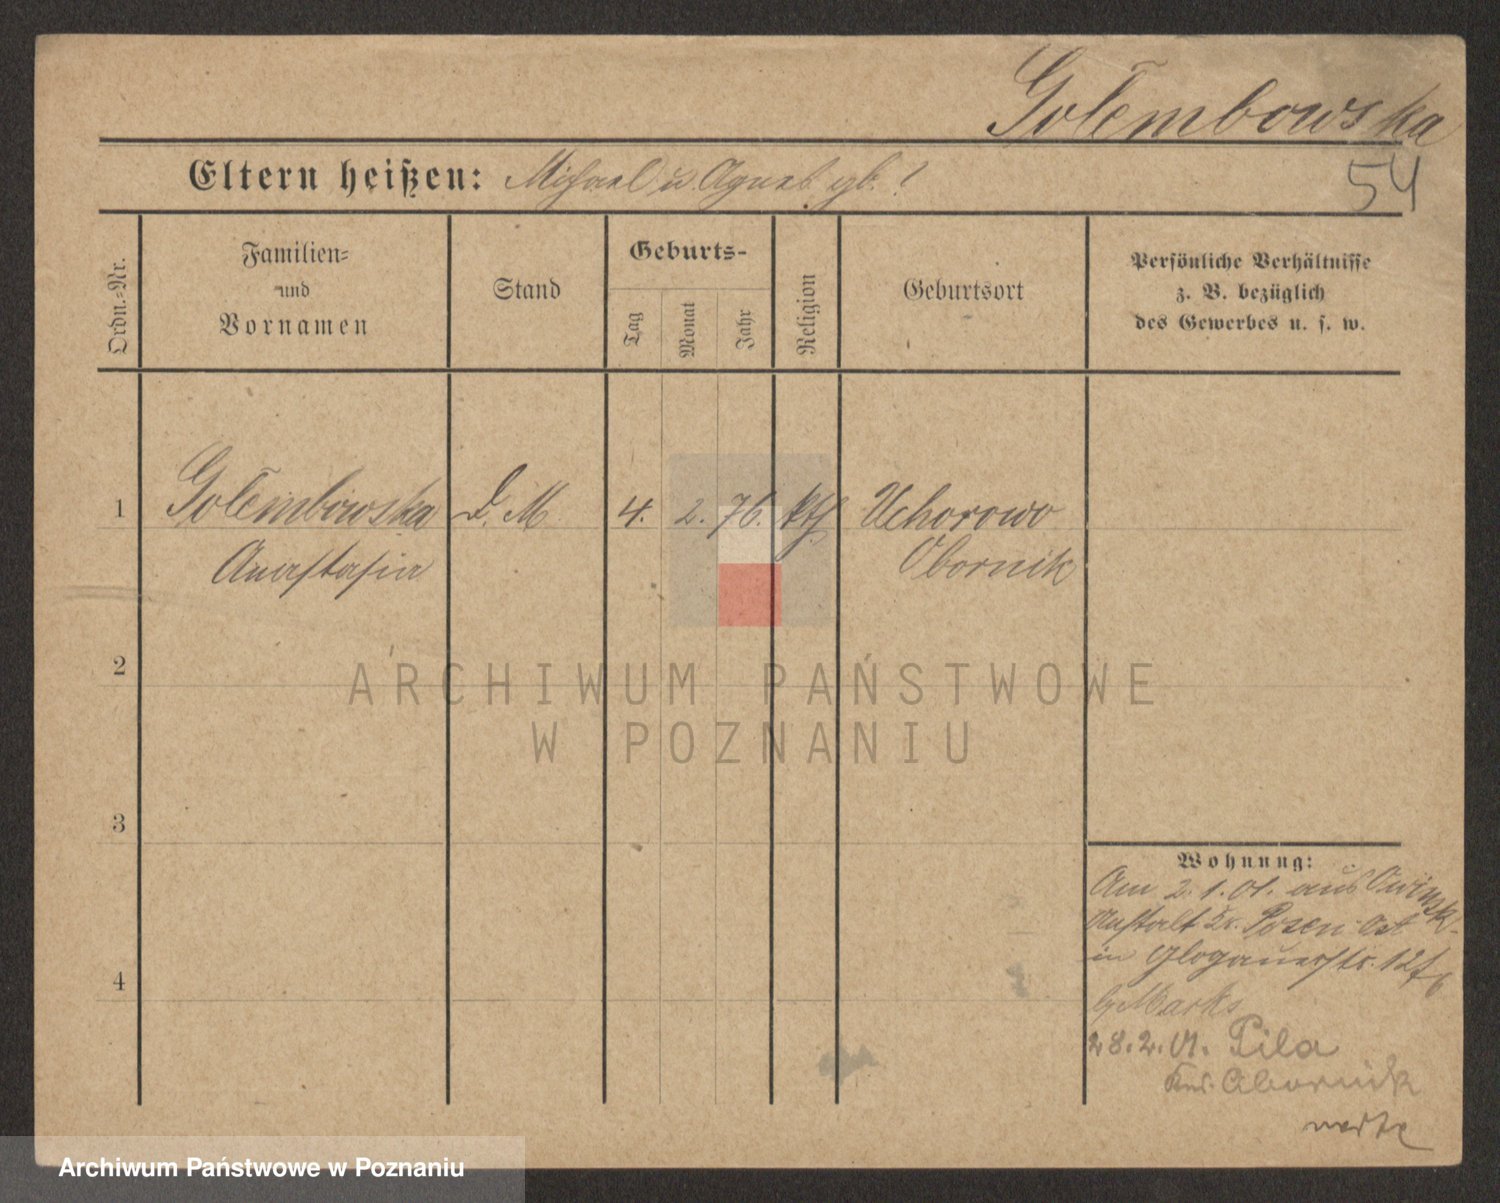 Golembowska
Eltern heißen: Michael u. Agnes gb. ?
54
Ordn.-Nr.
Familien-
und
Vornamen
Stand
Geburts-
Tag
Monat
Jahr
Religion
Geburtsort
Persönliche Verhältnisse
z. B. bezüglich
des Gewerbes u. s. w.
1 Golembowska D. M. 4. 2. 76. kth Uchorowo
Anastasia Obornik
2
3
4
Wohnung:
Am 2.1.01. aus Owinsk
Anstalt Kr. Posen-Ost
in Glogauerstr.
b/ Marks
28.2.01. Pila
Krs. Obornik
ARCHIWUM PAŃSTWOWE
W POZNANIU
Archiwum Państwowe w Poznaniu